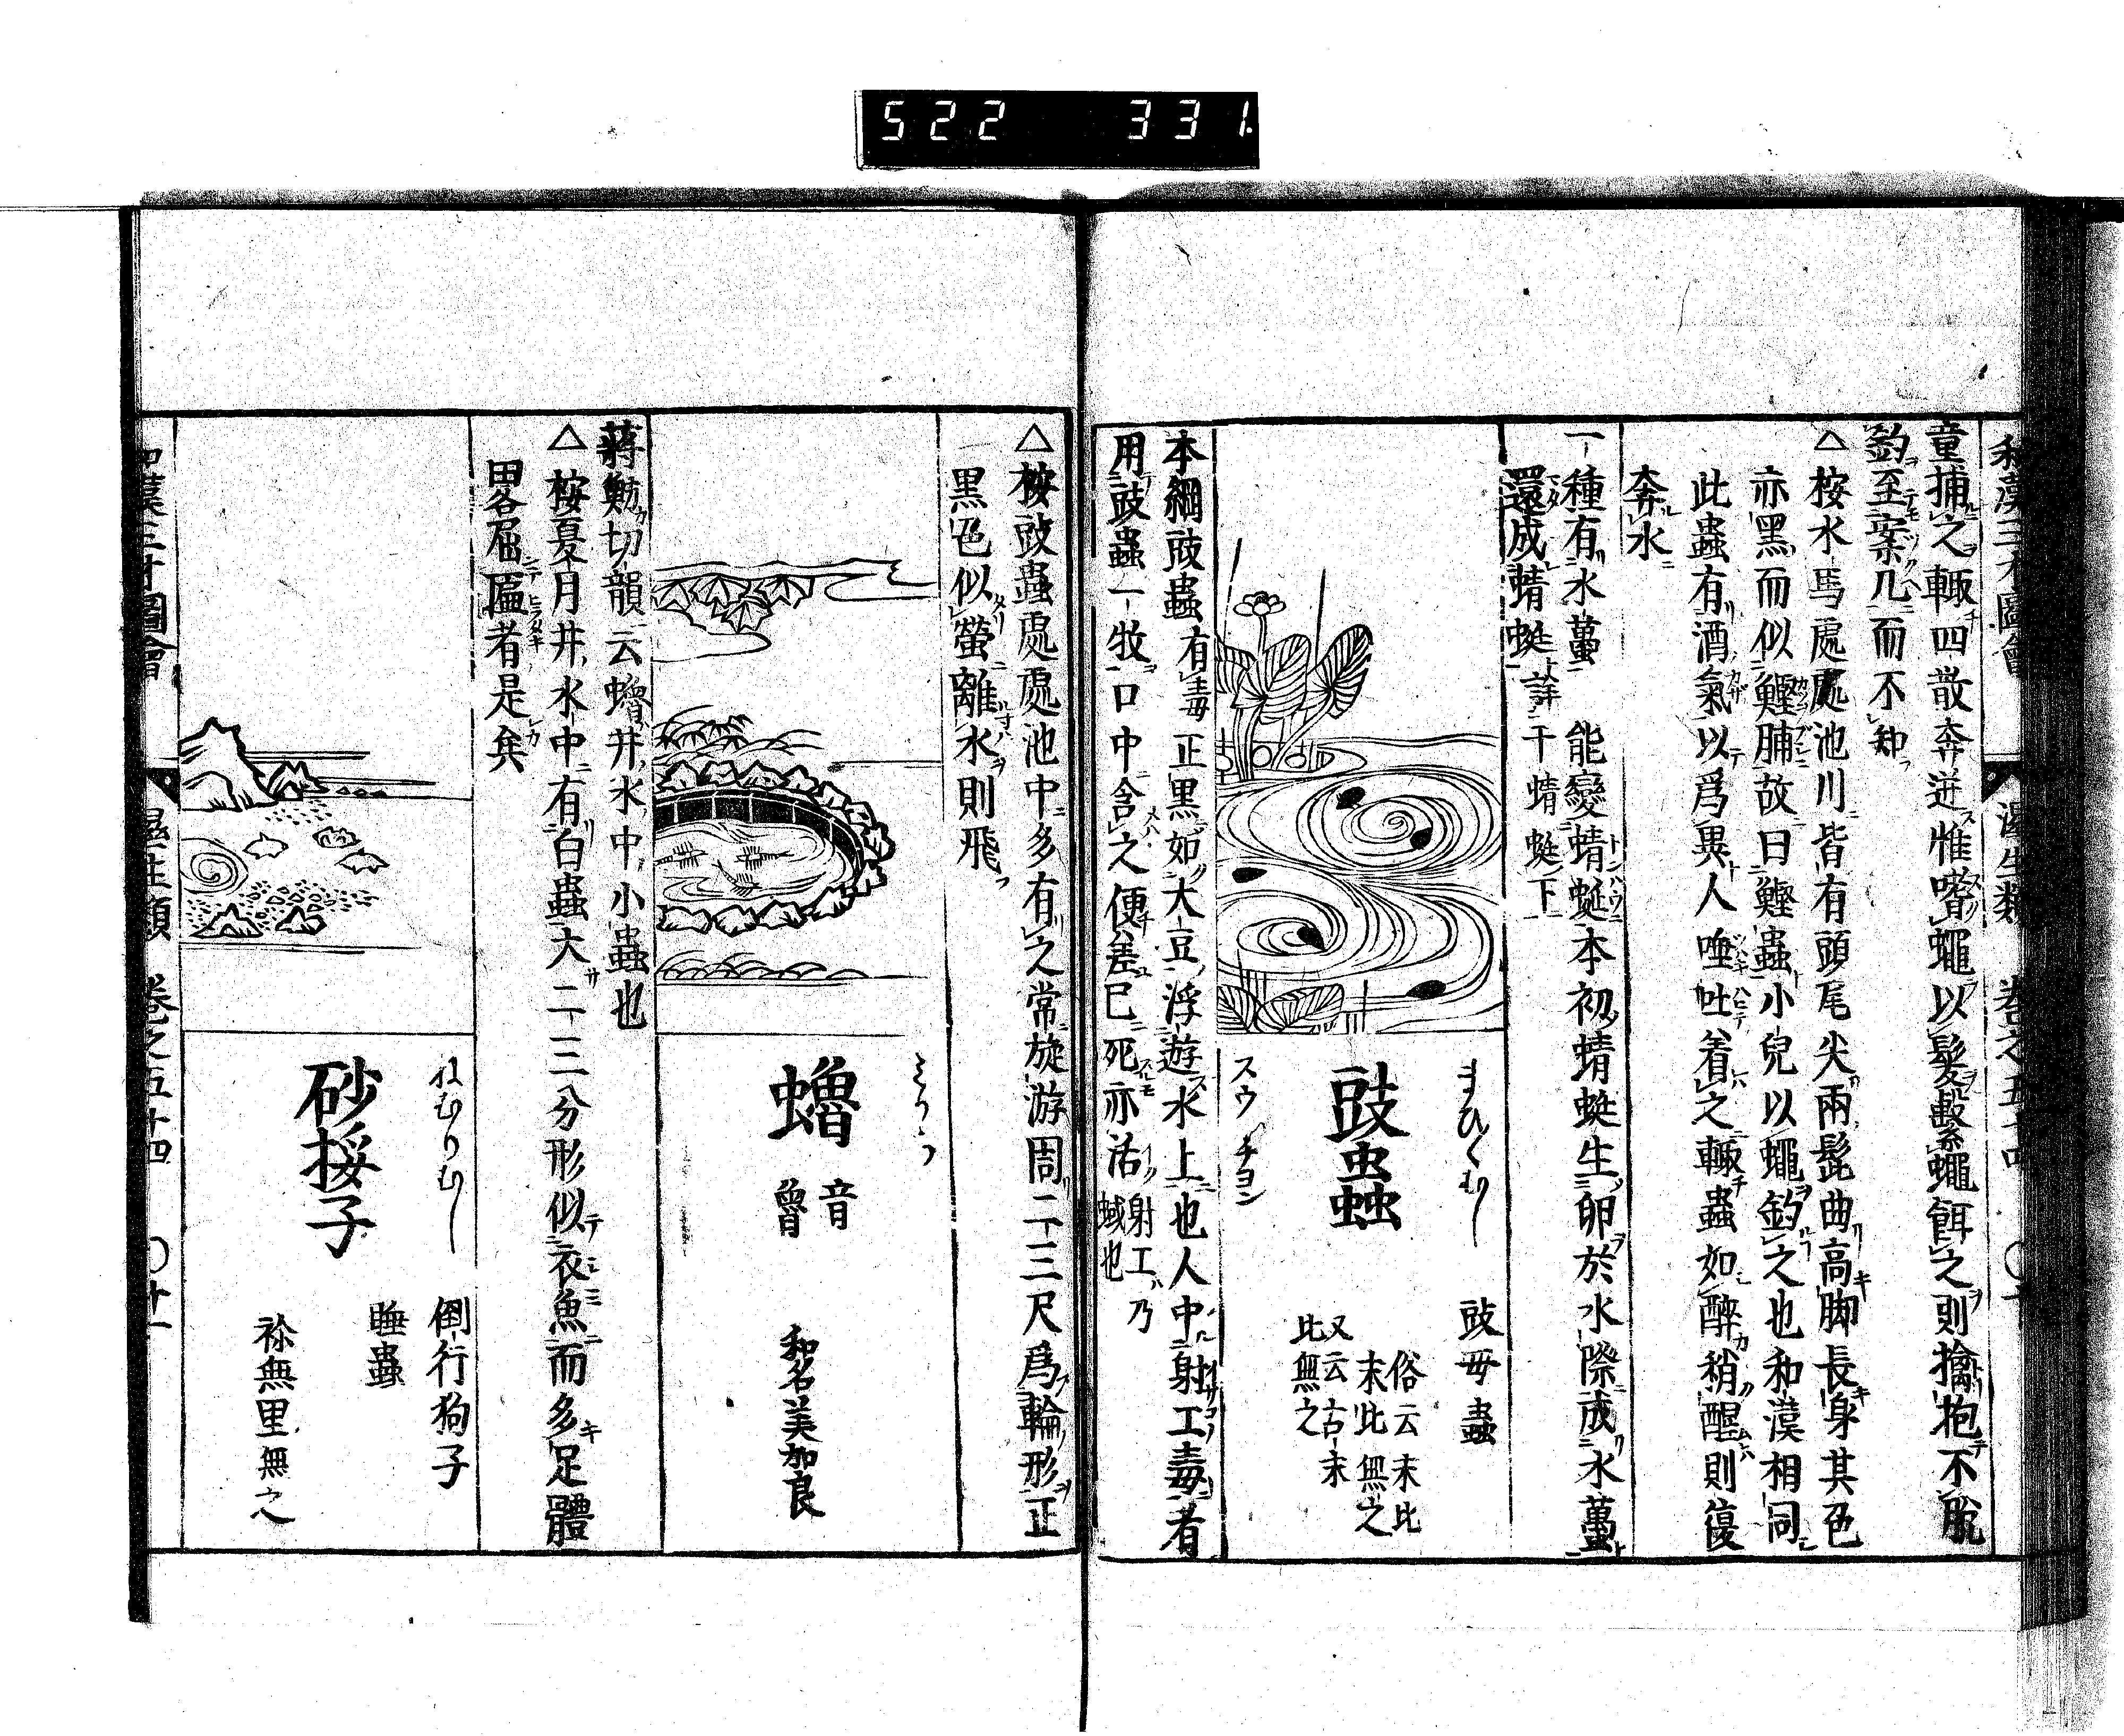 522 331
和漢三才圖會 濕生類 卷之五十四 〇十
童捕之輙四散奔迸惟嗜蠅以髮繫蠅餌之則擒抱不脫
釣至案几而不知
△桉水馬處處池川皆有頭尾尖兩髭曲高脚長身其色
亦黑而似鰹脯故曰鰹蟲小兒以蠅釣之也和漢相同
此蟲有酒氣以爲異人唾吐着之輙蟲如醉稍醒則復
奔水
一種有水蠆 能變蜻蜒本初蜻蜓生卵於水際成水蠆
還成蜻蜓詳于蜻蜓下
まひ〱むし
豉蟲
スウ チヨン
豉母蟲
俗云末比
末比無之
又云古末
比無之
本綱豉蟲有毒正黑如大豆浮遊水上也人中射工毒者
用豉蟲一枚口中含之便差已死亦活射工乃
蜮也
△桉豉蟲處處池中多有之常旋游周二三尺爲輪形正
黑色似螢離水則飛
蠀
音
曾
和名美加良
蔣魴切韻云蠀井水中小蟲也
△桉夏月井水中有白蟲大二三分形似衣魚而多足體
畧扁匾者是矣
ねむりむし
砂挼子
倒行狗子
睡蟲
祢無里無之
和漢三才圖會 濕生類 卷之五十四 〇十一